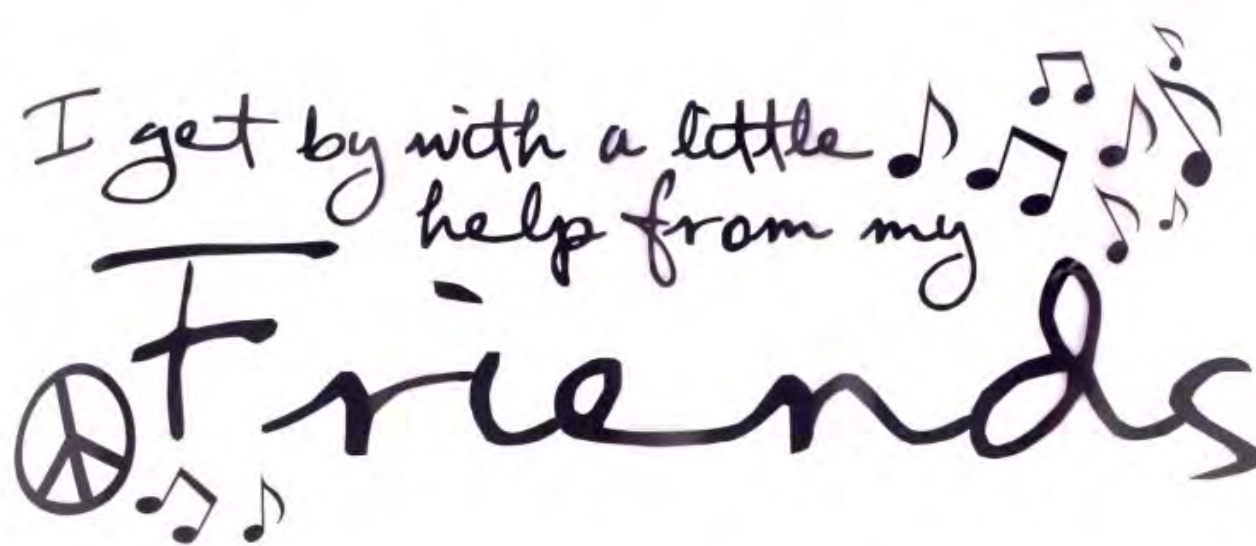 I get by with a little
help from my
Friends